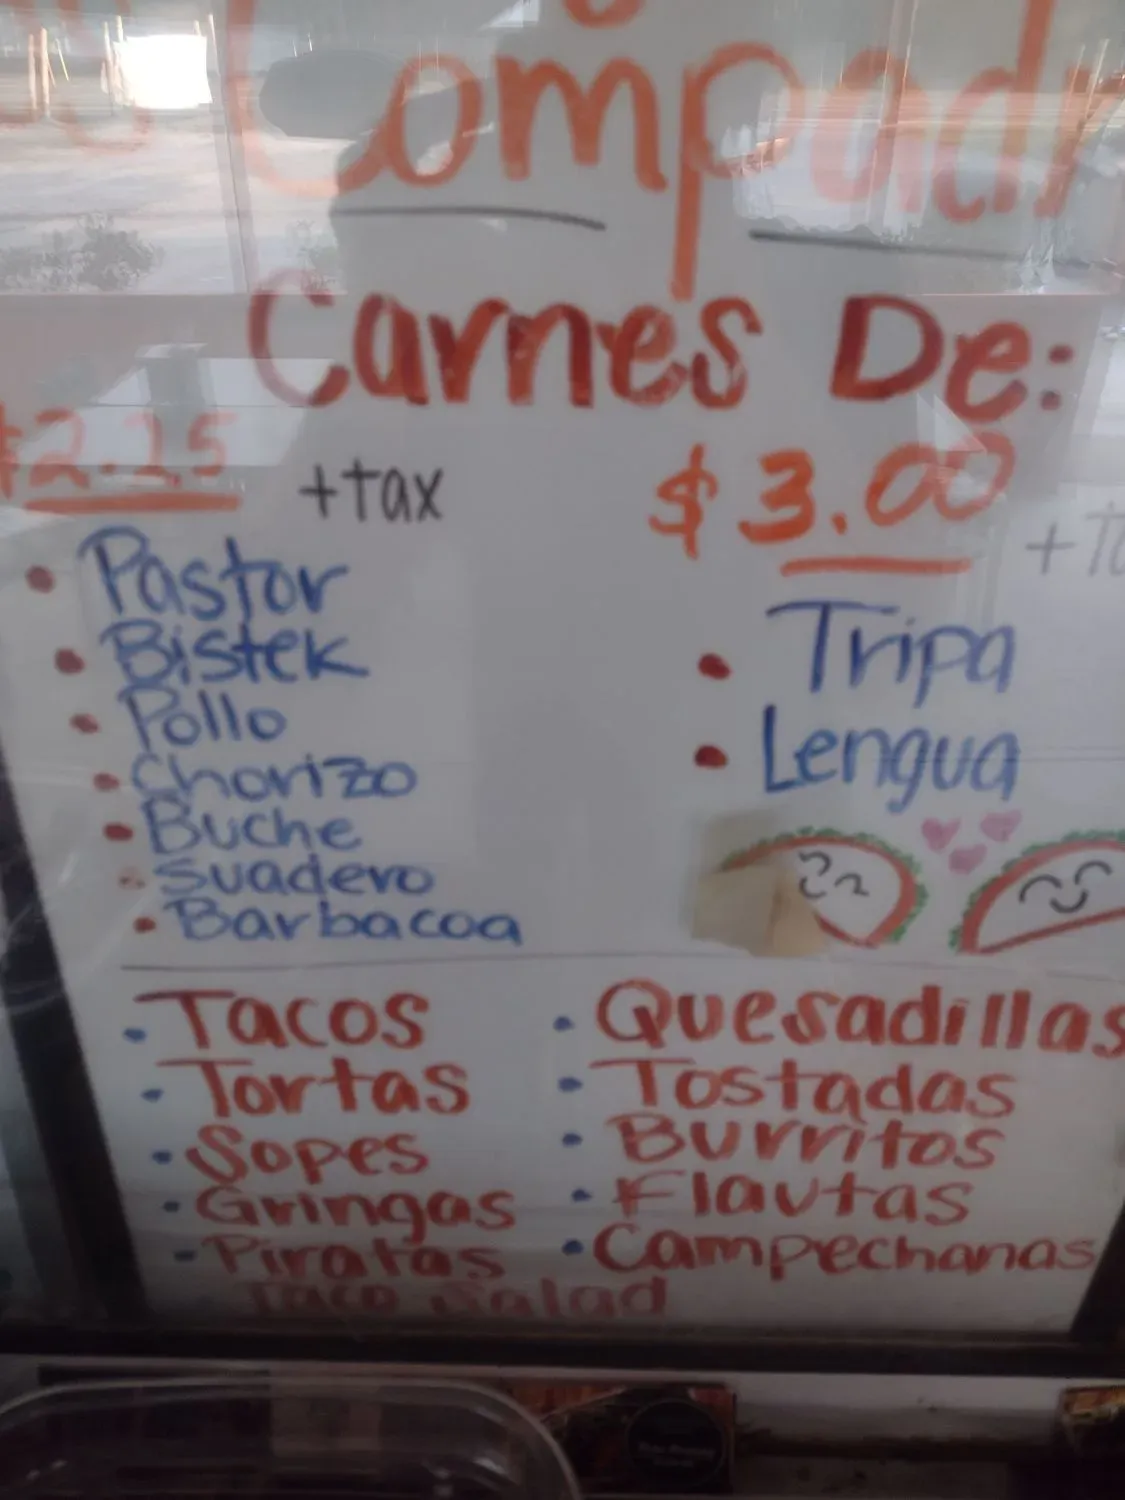 Compadr
Carnes De:
$2.25 +tax
$3.00 +ta
• Pastor
• Bistek
• Pollo
• Chorizo
• Buche
• Suadero
• Barbacoa
• Tripa
• Lengua
• Tacos
• Tortas
• Sopes
• Gringas
• Piratas
Taco Salad
• Quesadillas
• Tostadas
• Burritos
• Flautas
• Campechanas